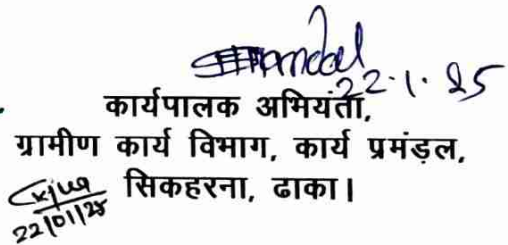 22.1.25
कार्यपालक अभियंता,
ग्रामीण कार्य विभाग, कार्य प्रमंड़ल,
सिकहरना, ढाका।
22/01/25